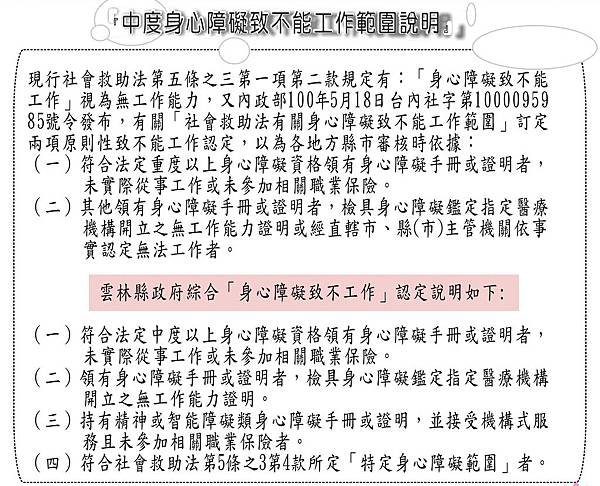 『中度身心障礙致不能工作範圍說明』
現行社會救助法第五條之三第一項第二款規定有：「身心障礙致不能
工作」視為無工作能力，又內政部100年5月18日台內社字第10000959
85號令發布，有關「社會救助法有關身心障礙致不能工作範圍」訂定
兩項原則性致不能工作認定，以為各地方縣市審核時依據：
（一）符合法定重度以上身心障礙資格領有身心障礙手冊或證明者，
未實際從事工作或未參加相關職業保險。
（二）其他領有身心障礙手冊或證明者，檢具身心障礙鑑定指定醫療
機構開立之無工作能力證明或經直轄市、縣(市)主管機關依事
實認定無法工作者。
雲林縣政府綜合「身心障礙致不工作」認定說明如下:
（一）符合法定中度以上身心障礙資格領有身心障礙手冊或證明者，
未實際從事工作或未參加相關職業保險。
（二）領有身心障礙手冊或證明者，檢具身心障礙鑑定指定醫療機構
開立之無工作能力證明。
（三）持有精神或智能障礙類身心障礙手冊或證明，並接受機構式服
務且未參加相關職業保險者。
（四）符合社會救助法第5條之3第4款所定「特定身心障礙範圍」者。